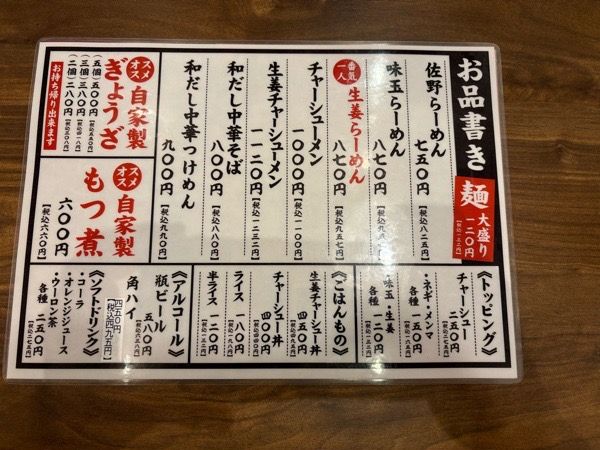 お品書き
麺
大盛り
一二〇円
【税込一三二円】
佐野らーめん
七五〇円
【税込八二五円】
味玉らーめん
八七〇円
【税込九五七円】
一番人気
生姜らーめん
八七〇円
【税込九五七円】
チャーシューメン
一〇〇〇円
【税込一一〇〇円】
生姜チャーシューメン
一一二〇円
【税込一二三二円】
和だし中華そば
八〇〇円
【税込八八〇円】
和だし中華つけめん
九〇〇円
【税込九九〇円】
オススメ
自家製
ぎょうざ
(五個)五〇〇円
【税込五五〇円】
(三個)三八〇円
【税込四一八円】
(二個)二八〇円
【税込三〇八円】
お持ち帰り出来ます
オススメ
自家製
もつ煮
六〇〇円
【税込六六〇円】
《トッピング》
チャーシュー
二五〇円
【税込二七五円】
・ネギ・メンマ
各種 一五〇円
【税込一六五円】
・味玉・生姜
各種 一二〇円
【税込一三二円】
《ごはんもの》
生姜チャーシュー丼
四五〇円
【税込四九五円】
チャーシュー丼
四〇〇円
【税込四四〇円】
ライス
一八〇円
【税込一九八円】
半ライス
一二〇円
【税込一三二円】
《アルコール》
瓶ビール
五八〇円
【税込六三八円】
角ハイ
四五〇円
【税込四九五円】
《ソフトドリンク》
・コーラ
・オレンジジュース
・ウーロン茶
各種 二五〇円
【税込二七五円】